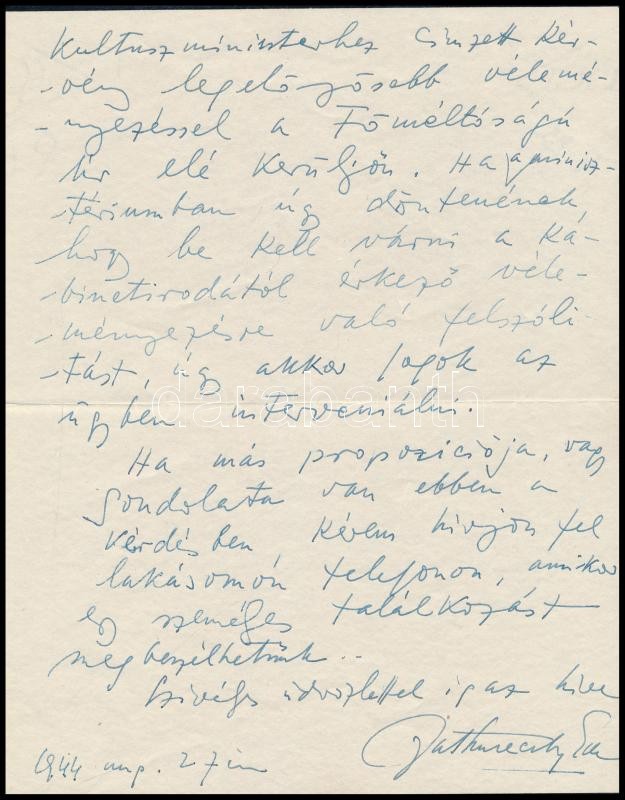 Kultuszminiszterhez címzett kér-
-vény legelőzősebb vélemé-
-nyezéssel a Főméltóságú
Úr elé kerüljön. Ha a minisz-
-tériumban úgy döntenének
hogy be kell várni a Ka-
-binetirodától érkező véle-
-ményezésre való felszóli-
-tást, úgy akkor fogok az
ügyben interveniálni.
Ha más propoziciója, vagy
gondolata van ebben a
kérdésben kérem hívjon fel
lakásomon telefonon, amikor
egy személyes találkozást
megbeszélhetünk..
Szívélyes üdvözlettel igaz híve
Zathureczky Ede
1944 aug. 27 én
darabanth